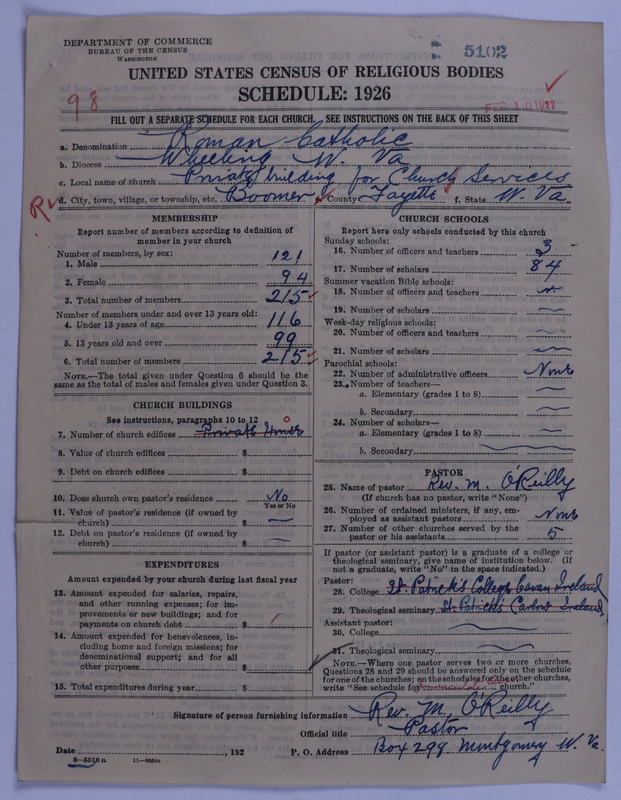 DEPARTMENT OF COMMERCE
BUREAU OF THE CENSUS
WASHINGTON
5102
UNITED STATES CENSUS OF RELIGIOUS BODIES
SCHEDULE: 1926
98
FEB 10 1927
FILL OUT A SEPARATE SCHEDULE FOR EACH CHURCH. SEE INSTRUCTIONS ON THE BACK OF THIS SHEET
a. Denomination Roman Catholic
b. Diocese Wheeling W. Va
c. Local name of church Private building for Church Services
R
d. City, town, village, or township, etc. Boomer County Fayette f. State W. Va
MEMBERSHIP
Report number of members according to definition of member in your church
Number of members, by sex:
1. Male 121
2. Female 94
3. Total number of members 215
Number of members under and over 13 years old:
4. Under 13 years of age 116
5. 13 years old and over 99
6. Total number of members 215
NOTE.—The total given under Question 6 should be the
same as the total of males and females given under Question 3.
CHURCH BUILDINGS
See instructions, paragraphs 10 to 12 0
7. Number of church edifices Private
8. Value of church edifices $
9. Debt on church edifices $
10. Does church own pastor's residence No
Yes or No
11. Value of pastor's residence (if owned by
church) $ —
12. Debt on pastor's residence (if owned by
church) $ —
EXPENDITURES
Amount expended by your church during last fiscal year
13. Amount expended for salaries, repairs,
and other running expenses; for im-
provements or new buildings; and for
payments on church debt $
14. Amount expended for benevolences, in-
cluding home and foreign missions; for
denominational support; and for all
other purposes $
15. Total expenditures during year $
CHURCH SCHOOLS
Report here only schools conducted by this church
Sunday schools:
16. Number of officers and teachers 3
17. Number of scholars 84
Summer vacation Bible schools:
18. Number of officers and teachers
19. Number of scholars —
Week-day religious schools:
20. Number of officers and teachers —
21. Number of scholars —
Parochial schools:
22. Number of administrative officers None
23. Number of teachers—
a. Elementary (grades 1 to 8) —
b. Secondary —
24. Number of scholars—
a. Elementary (grades 1 to 8) —
b. Secondary —
PASTOR
25. Name of pastor Rev. M. O'Reilly
(If church has no pastor, write "None")
26. Number of ordained ministers, if any, em-
ployed as assistant pastors None
27. Number of other churches served by the
pastor or his assistants 5
If pastor (or assistant pastor) is a graduate of a college or
theological seminary, give name of institution below. (If
not a graduate, write "No" in the space indicated.)
Pastor:
28. College St. Patrick's College Cavan Ireland
29. Theological seminary St. Patricks Carlow Ireland
Assistant pastor:
30. College —
31. Theological seminary —
NOTE.—Where one pastor serves two or more churches,
Questions 28 and 29 should be answered only on the schedule
for one of the churches; on the schedules for the other churches,
write "See schedule for church."
Signature of person furnishing information Rev. M. O'Reilly
Official title Pastor
Date , 192 P. O. Address Box 298 Montgomery W. Va.
8—5518 a 11—9054c